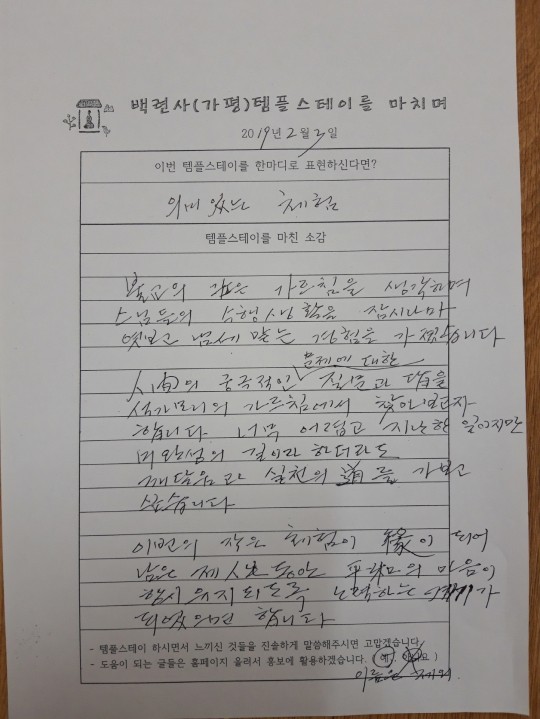 백련사(가평)템플스테이를 마치며
2019년 2월 3일
이번 템플스테이를 한마디로 표현하신다면?
의미 있는 체험
템플스테이를 마친 소감
불교의 깊은 가르침을 생각하며
스님들의 수행생활은 잠시나마
엿보고 냄새 맡는 경험을 가졌습니다
문제에 대한
人間의 궁극적인 질문과 답을
석가모니의 가르침에서 찾아보고자
합니다. 너무 어렵고 지난한 일이지만
미완성의 길이라 하더라도
깨달음과 실천의 道를 가보고
싶습니다
이번의 작은 체험이 緣이 되어
남은 제 人生 동안 平和의 마음이
항시 유지되도록 노력하는 계기가
되었으면 합니다
- 템플스테이 하시면서 느끼신 것들을 진솔하게 말씀해주시면 고맙겠습니다.
- 도움이 되는 글들은 홈페이지 올려서 홍보에 활용하겠습니다. ( 예, 아니요 )
이름은 제외.